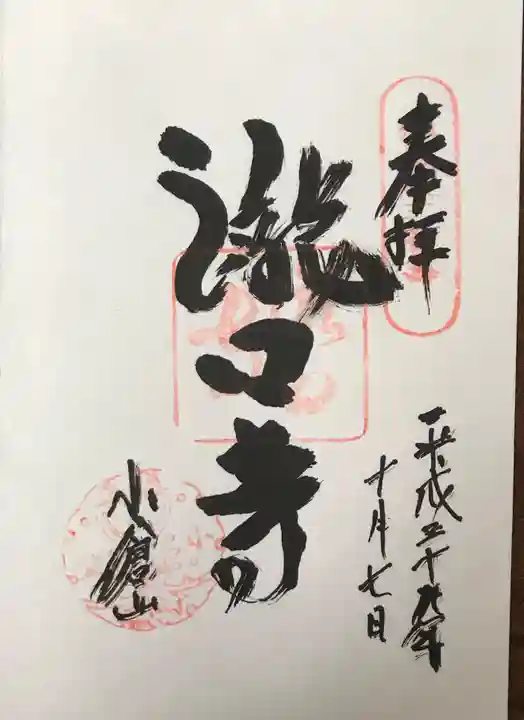 奉拝
平成二十九年
十月七日
滝口寺
小倉山